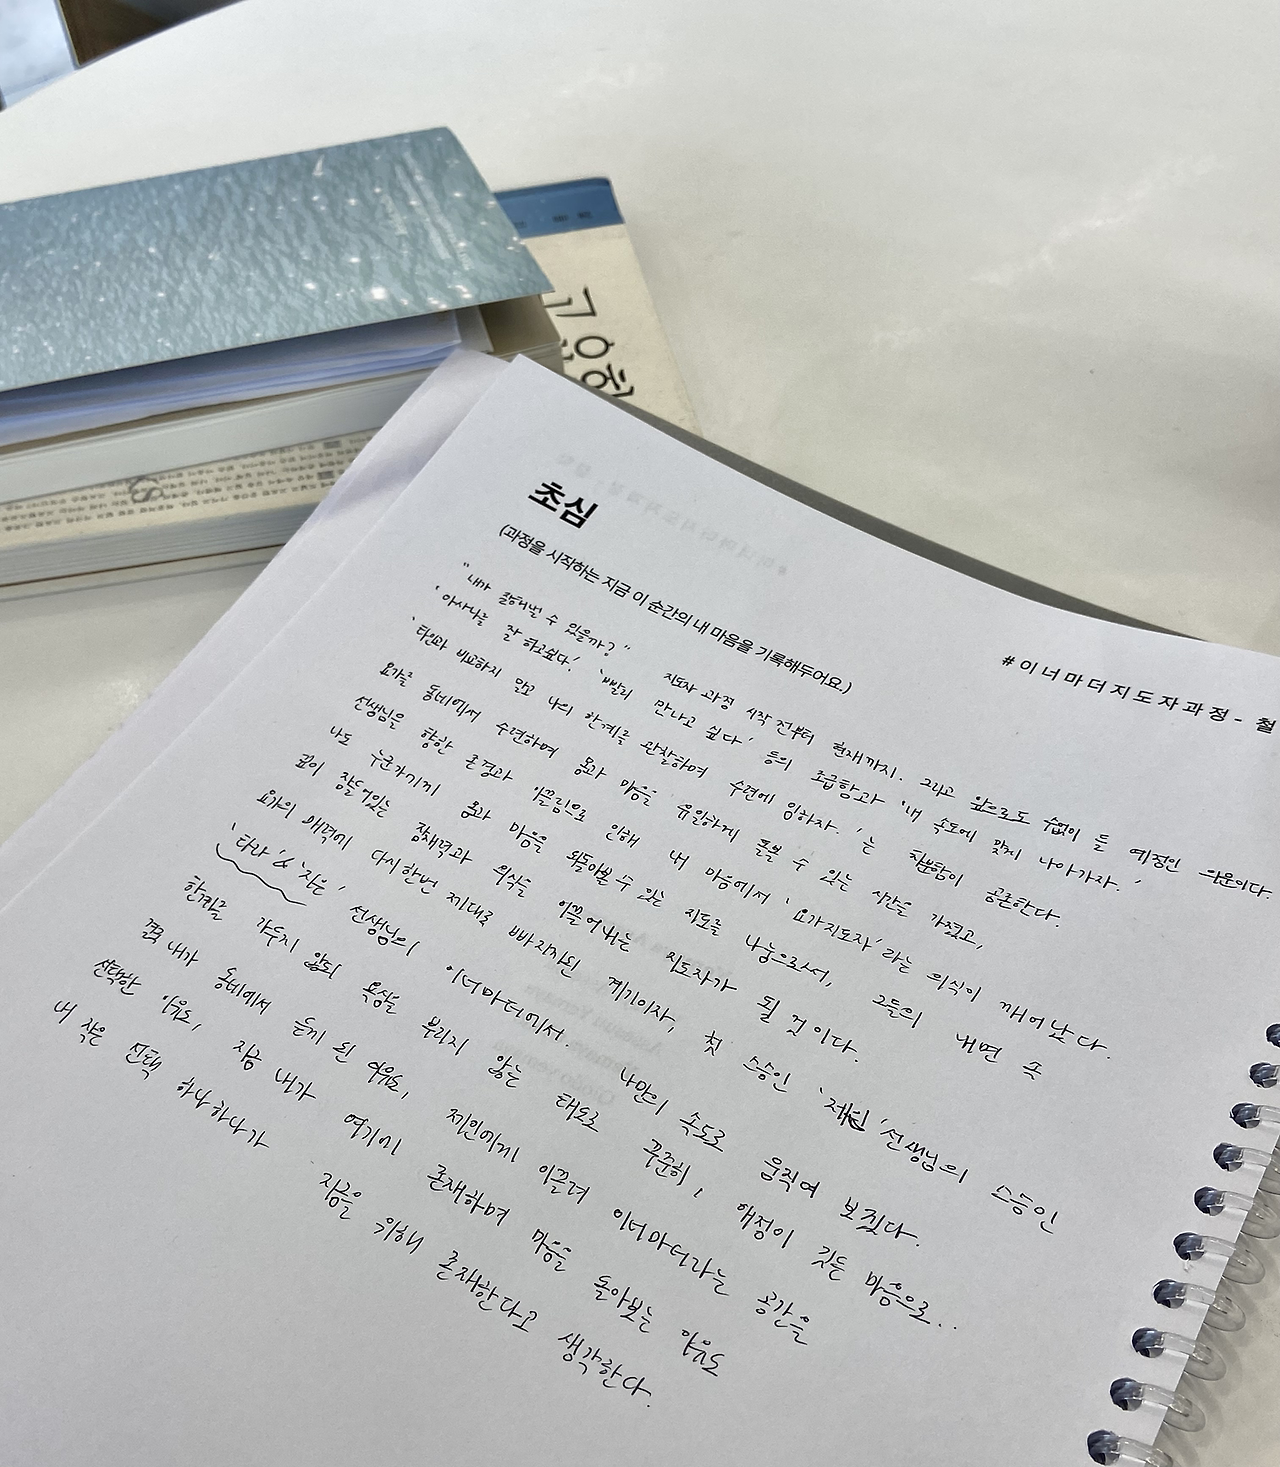 고요한
초심
(과정을 시작하는 지금 이 순간의 내 마음을 기록해두어요.)
#이너마더지도자과정- 철
"내가 잘해낼 수 있을까?" 지도자 과정 시작 전부터 현재까지. 그리고 앞으로도 수없이 들 예정인 의문이다.
'아사나를 잘 하고싶다.' '빨리 만나고 싶다' 등의 조급함과 '내 속도에 맞게 나아가자.'
'타인과 비교하지 않고 나의 한계를 관찰하며 수련에 임하자.'는 차분함이 공존한다.
요가를 동네에서 수련하며 몸과 마음을 유일하게 돌볼 수 있는 시간을 가졌고,
선생님을 향한 존경과 이끌림으로 인해 내 마음에서 '요가지도자'라는 의식이 깨어났다.
나도 누군가에게 몸과 마음을 되돌아볼 수 있는 지도를 나눔으로서, 그들의 내면 곳
깊이 잠들어있는 잠재력과 의식을 이끌어내는 지도자가 될 것이다.
요가의 매력에 다시한번 제대로 빠지게된 계기이자, 첫 스승인 선생님의 스승인
'타라' & '지은' 선생님의 이너마더에서. 나만의 속도로 움직여 보겠다.
한계를 가두지 않되 욕심을 부리지 않는 태도로 꾸준히, 애정이 깃든 마음으로..
내가 동네에서 듣게 된 이유도, 제인에게 이끌려 이너마더라는 공간을
선택한 이유도, 지금 내가 여기에 존재하며 마음을 돌아보는 이유도
내 작은 선택 하나하나가 지금을 위해 존재한다고 생각한다.